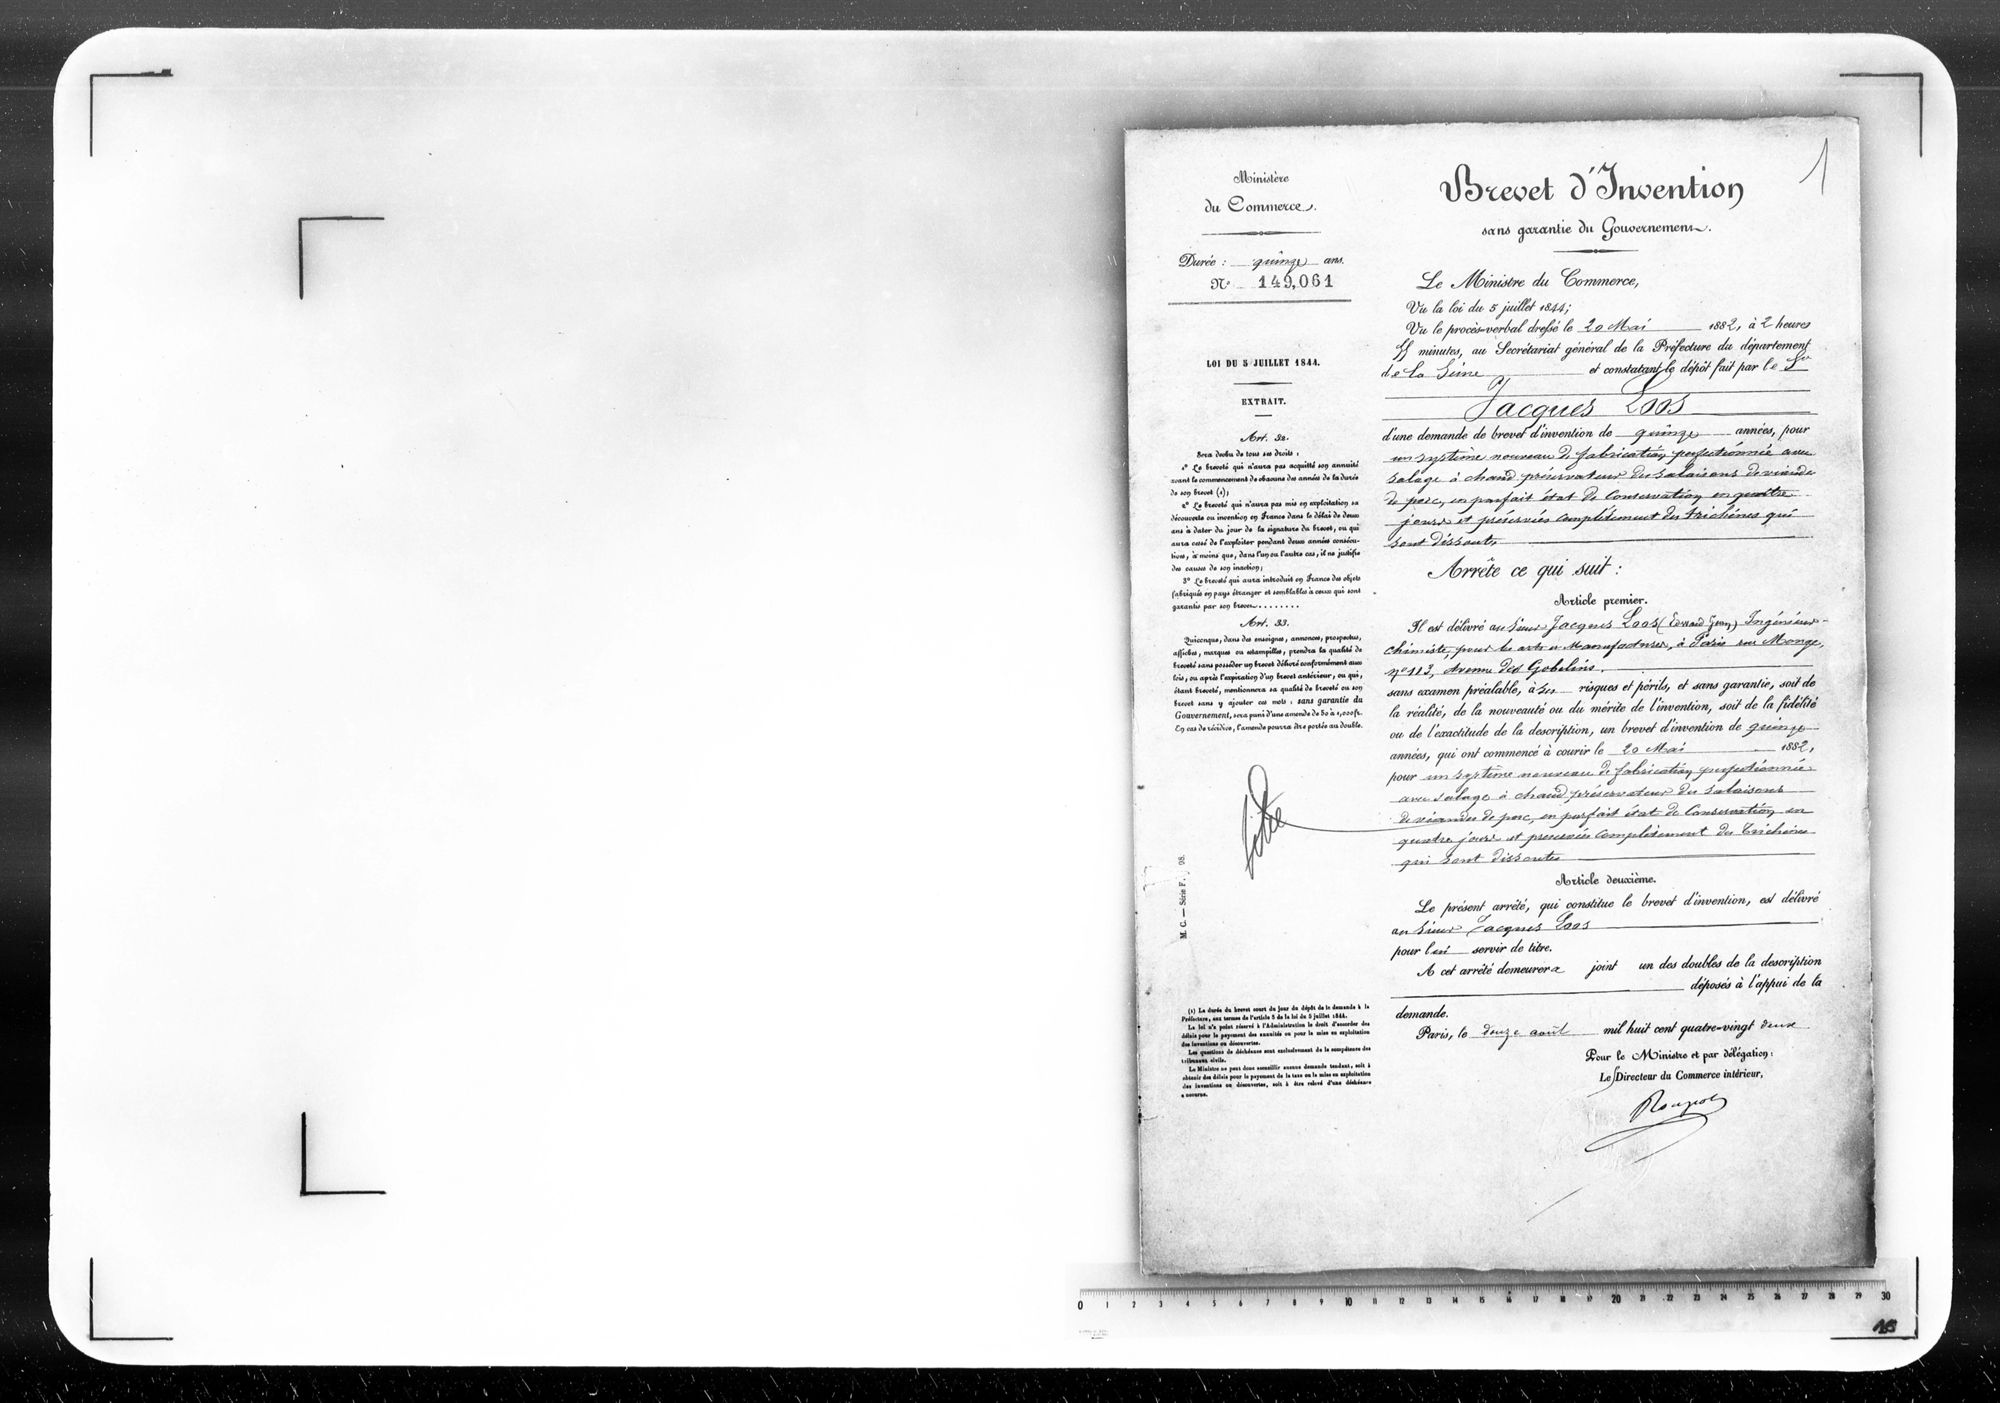 1
Ministère
du Commerce.
Durée : quinze ans.
N° 149,061
LOI DU 5 JUILLET 1844.
EXTRAIT.
Art. 32.
Sera déchu de tous ses droits :
1° Le breveté qui n'aura pas acquitté son annuité
avant le commencement de chacune des années de la durée
de son brevet (1);
2° Le breveté qui n'aura pas mis en exploitation sa
découverte ou invention en France dans le délai de deux
ans à dater du jour de la signature du brevet, ou qui
aura cessé de l'exploiter pendant deux années consécu-
tives, à moins que, dans l'un ou l'autre cas, il ne justifie
des causes de son inaction;
3° Le breveté qui aura introduit en France des objets
fabriqués en pays étranger et semblables à ceux qui sont
garantis par son brevet........
Art. 33.
Quiconque, dans des enseignes, annonces, prospectus,
affiches, marques ou estampilles, prendra la qualité de
breveté sans posséder un brevet délivré conformément aux
lois, ou après l'expiration d'un brevet antérieur, ou qui,
étant breveté, mentionnera sa qualité de breveté ou son
brevet sans y ajouter ces mots : sans garantie du
Gouvernement, sera puni d'une amende de 50 à 1,000 fr.
En cas de récidive, l'amende pourra être portée au double.
M. C. — Série F. 98.
(1) La durée du brevet court du jour du dépôt de la demande à la
Préfecture, aux termes de l'article 8 de la loi du 5 juillet 1844.
La loi n'a point réservé à l'Administration le droit d'accorder des
délais pour le payement des annuités ou pour la mise en exploitation
des inventions ou découvertes.
Les questions de déchéance sont exclusivement de la compétence des
tribunaux civils.
Le Ministre ne peut donc accueillir aucune demande tendant, soit à
obtenir des délais pour le payement de la taxe ou la mise en exploitation
des inventions ou découvertes, soit à être relevé d'une déchéance
encourue.
Brevet d'Invention
sans garantie du Gouvernement.
Le Ministre du Commerce,
Vu la loi du 5 juillet 1844;
Vu le procès-verbal dressé le 20 Mai 1882, à 2 heures
55 minutes, au Secrétariat général de la Préfecture du département
de la Seine et constatant le dépôt fait par le Sr
Jacques Loos
d'une demande de brevet d'invention de quinze années, pour
un système nouveau de fabrication perfectionnée avec
salage à chaud préservateur des salaisons de viande
de porc, en parfait état de conservation en quatre
jours et préservées complètement des trichines qui
sont dissoutes
Arrête ce qui suit :
Article premier.
Il est délivré au Sieur Jacques Loos (Edward Jean) Ingénieur-
chimiste, pour les arts et Manufactures, à Paris rue Monge,
n° 113, Avenue des Gobelins.
sans examen préalable, à ses risques et périls, et sans garantie, soit de
la réalité, de la nouveauté ou du mérite de l'invention, soit de la fidélité
ou de l'exactitude de la description, un brevet d'invention de quinze
années, qui ont commencé à courir le 20 Mai 1882,
pour un système nouveau de fabrication perfectionnée
avec salage à chaud préservateur des salaisons
de viandes de porc, en parfait état de Conservation en
quatre jours et préservées complètement des trichines
qui sont dissoutes
Article deuxième.
Le présent arrêté, qui constitue le brevet d'invention, est délivré
au Sieur Jacques Loos
pour lui servir de titre.
A cet arrêté demeurera joint un des doubles de la description
déposés à l'appui de la
demande.
Paris, le douze août mil huit cent quatre-vingt deux
Pour le Ministre et par délégation :
Le Directeur du Commerce intérieur,
0 1 2 3 4 5 6 7 8 9 10 11 12 13 14 15 16 17 18 19 20 21 22 23 24 25 26 27 28 29 30
16